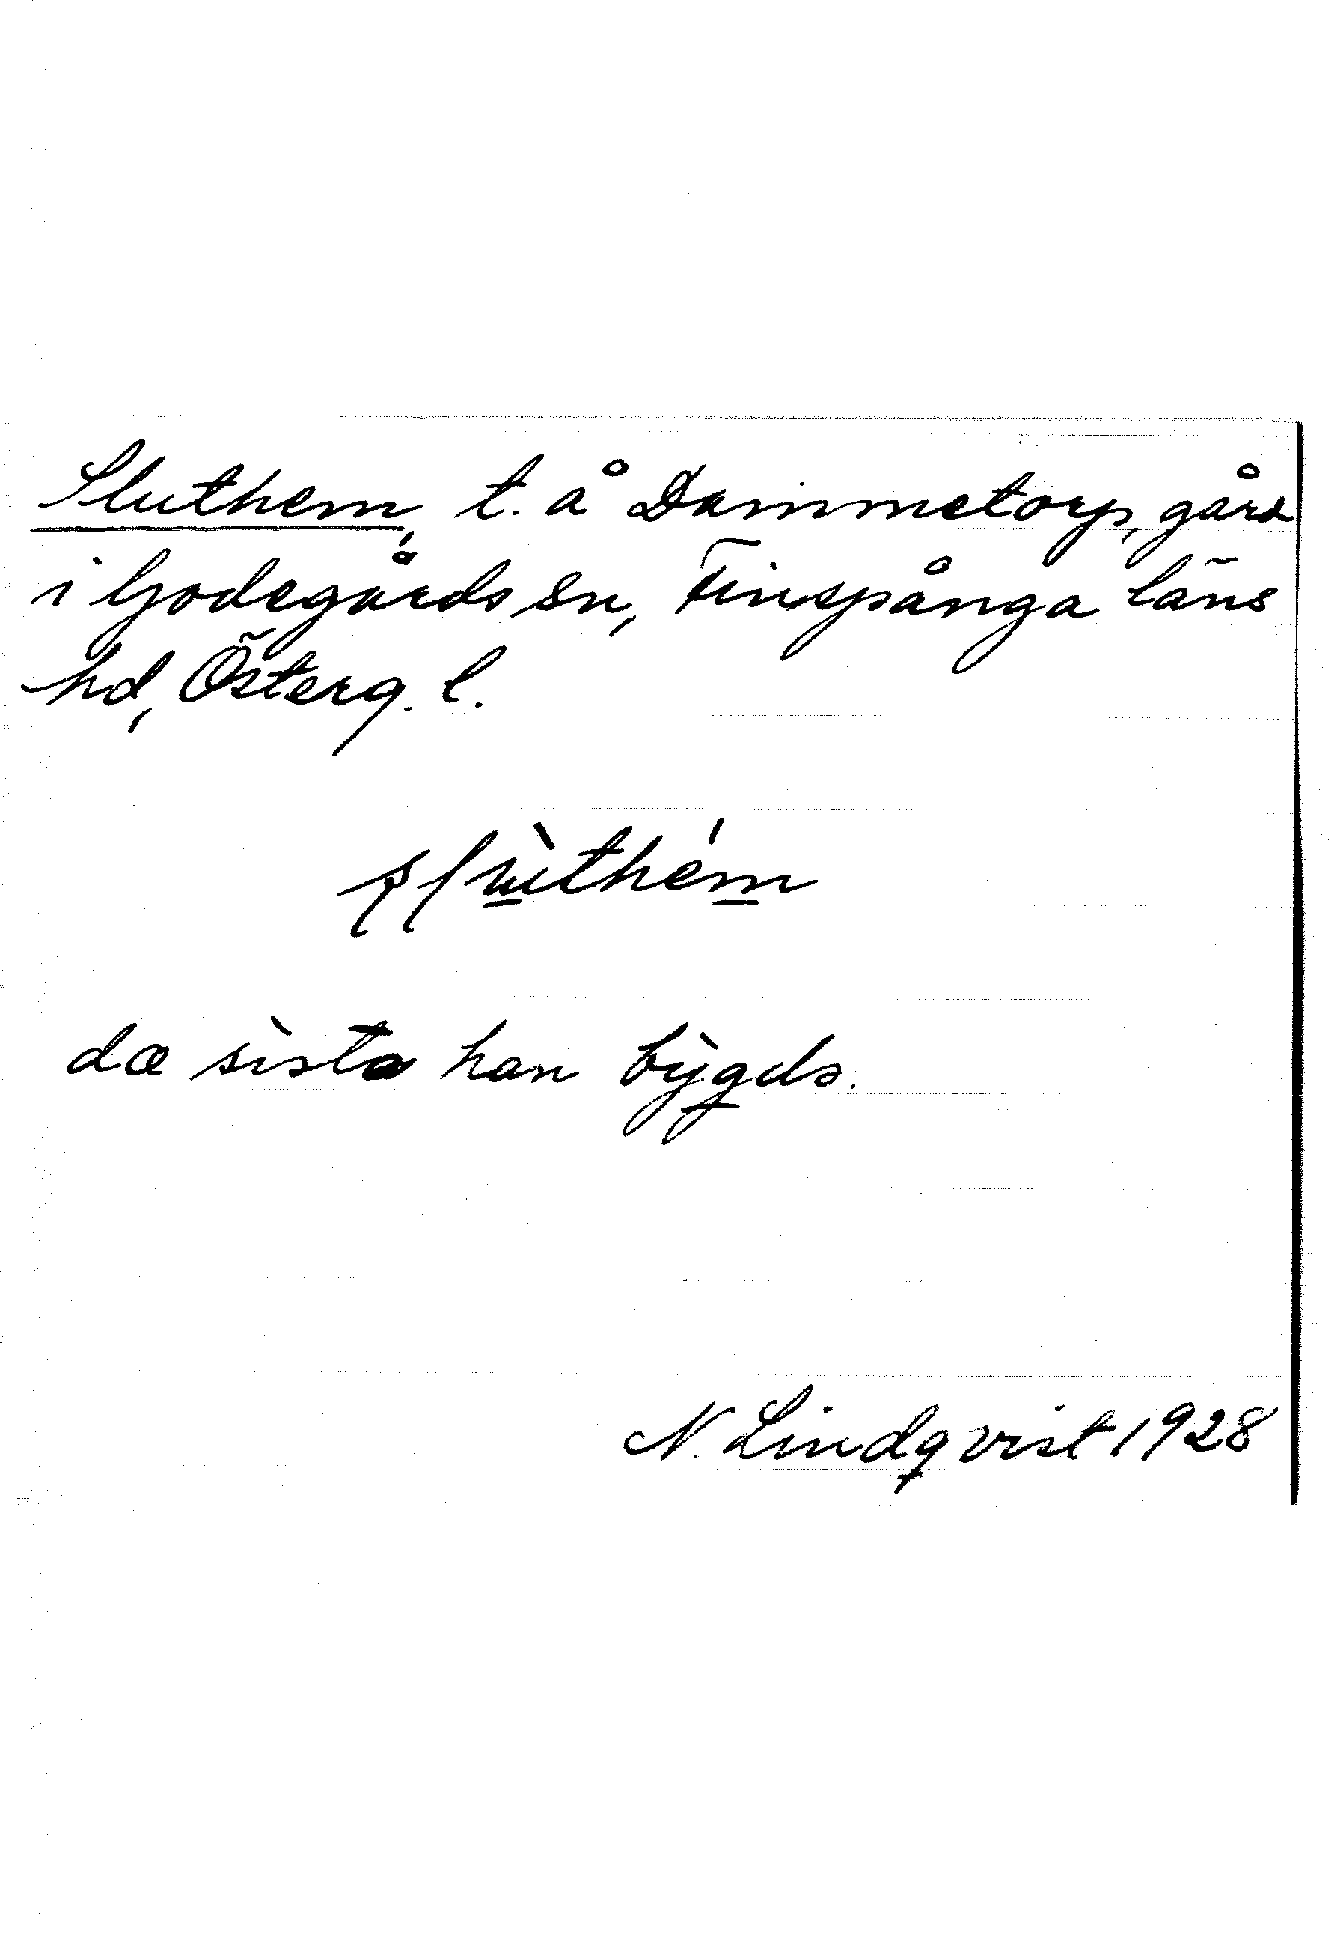 Sluthem, t. å Dammetorp, gård
i Godegårds sn, Finspånga läns
hd, Österg. l.
slùthém
dæ sìsta han bỳgds.
N. Lindqvist 1928